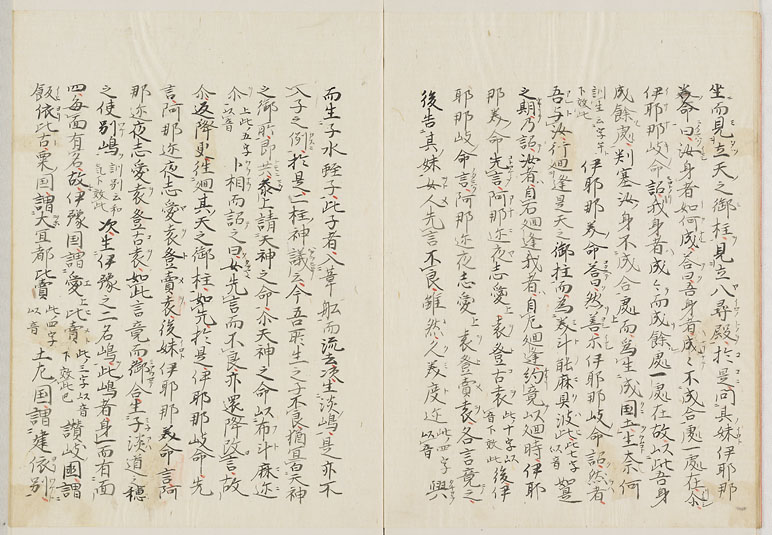 坐而見立天之御柱見立八尋殿於是問其妹伊耶那
美命曰汝身者如何成荅曰吾身者成〻不成合處一處在尒
伊耶那岐命詔我身者成〻而成餘處一處在故以此吾身
成餘處刾塞汝身不成合處而為生成国土生奈何
訓生云宇牟下效此 伊耶那美命荅曰然善尒伊耶那岐命詔然者
吾与汝行廻逢是天之御柱而為美斗能麻具波比此七字以音 如是
之期乃詔汝者自右廻逢我者自左廻逢約竟以廻時伊耶
那美命先言阿那迩夜志愛上袁登古袁此十字以音下效此 後伊
耶那岐命言阿那迩夜志愛上袁登賣袁各言竟之
後告其妹女人先言不良雖然久美度迩此四字以音 興
而生子水蛭子此子者入葦舩而流去次生淡嶋是亦不
入子之例於是二柱神議云今吾所生之子不良猶宜白天神
之御所即共参上請天神之命尒天神之命以布斗麻迩
尒上此五字以音 卜相而詔之曰女先言而不良亦還降改言故
尒返降更往廻其天之御柱如先於是伊耶那岐命先
言阿那迩夜志愛袁登賣袁後妹伊耶那美命言阿
那迩夜志愛袁登古袁如此言竟而御合生子淡道之穂
之使別嶋訓別云和気下效此 次生伊豫之二名嶋此嶋者身一而有面
四毎面有名故伊豫国謂愛上比賣此三字以音下效此也 讃岐國謂
飯依比古粟国謂大宜都比賣此四字以音 土左国謂建依別